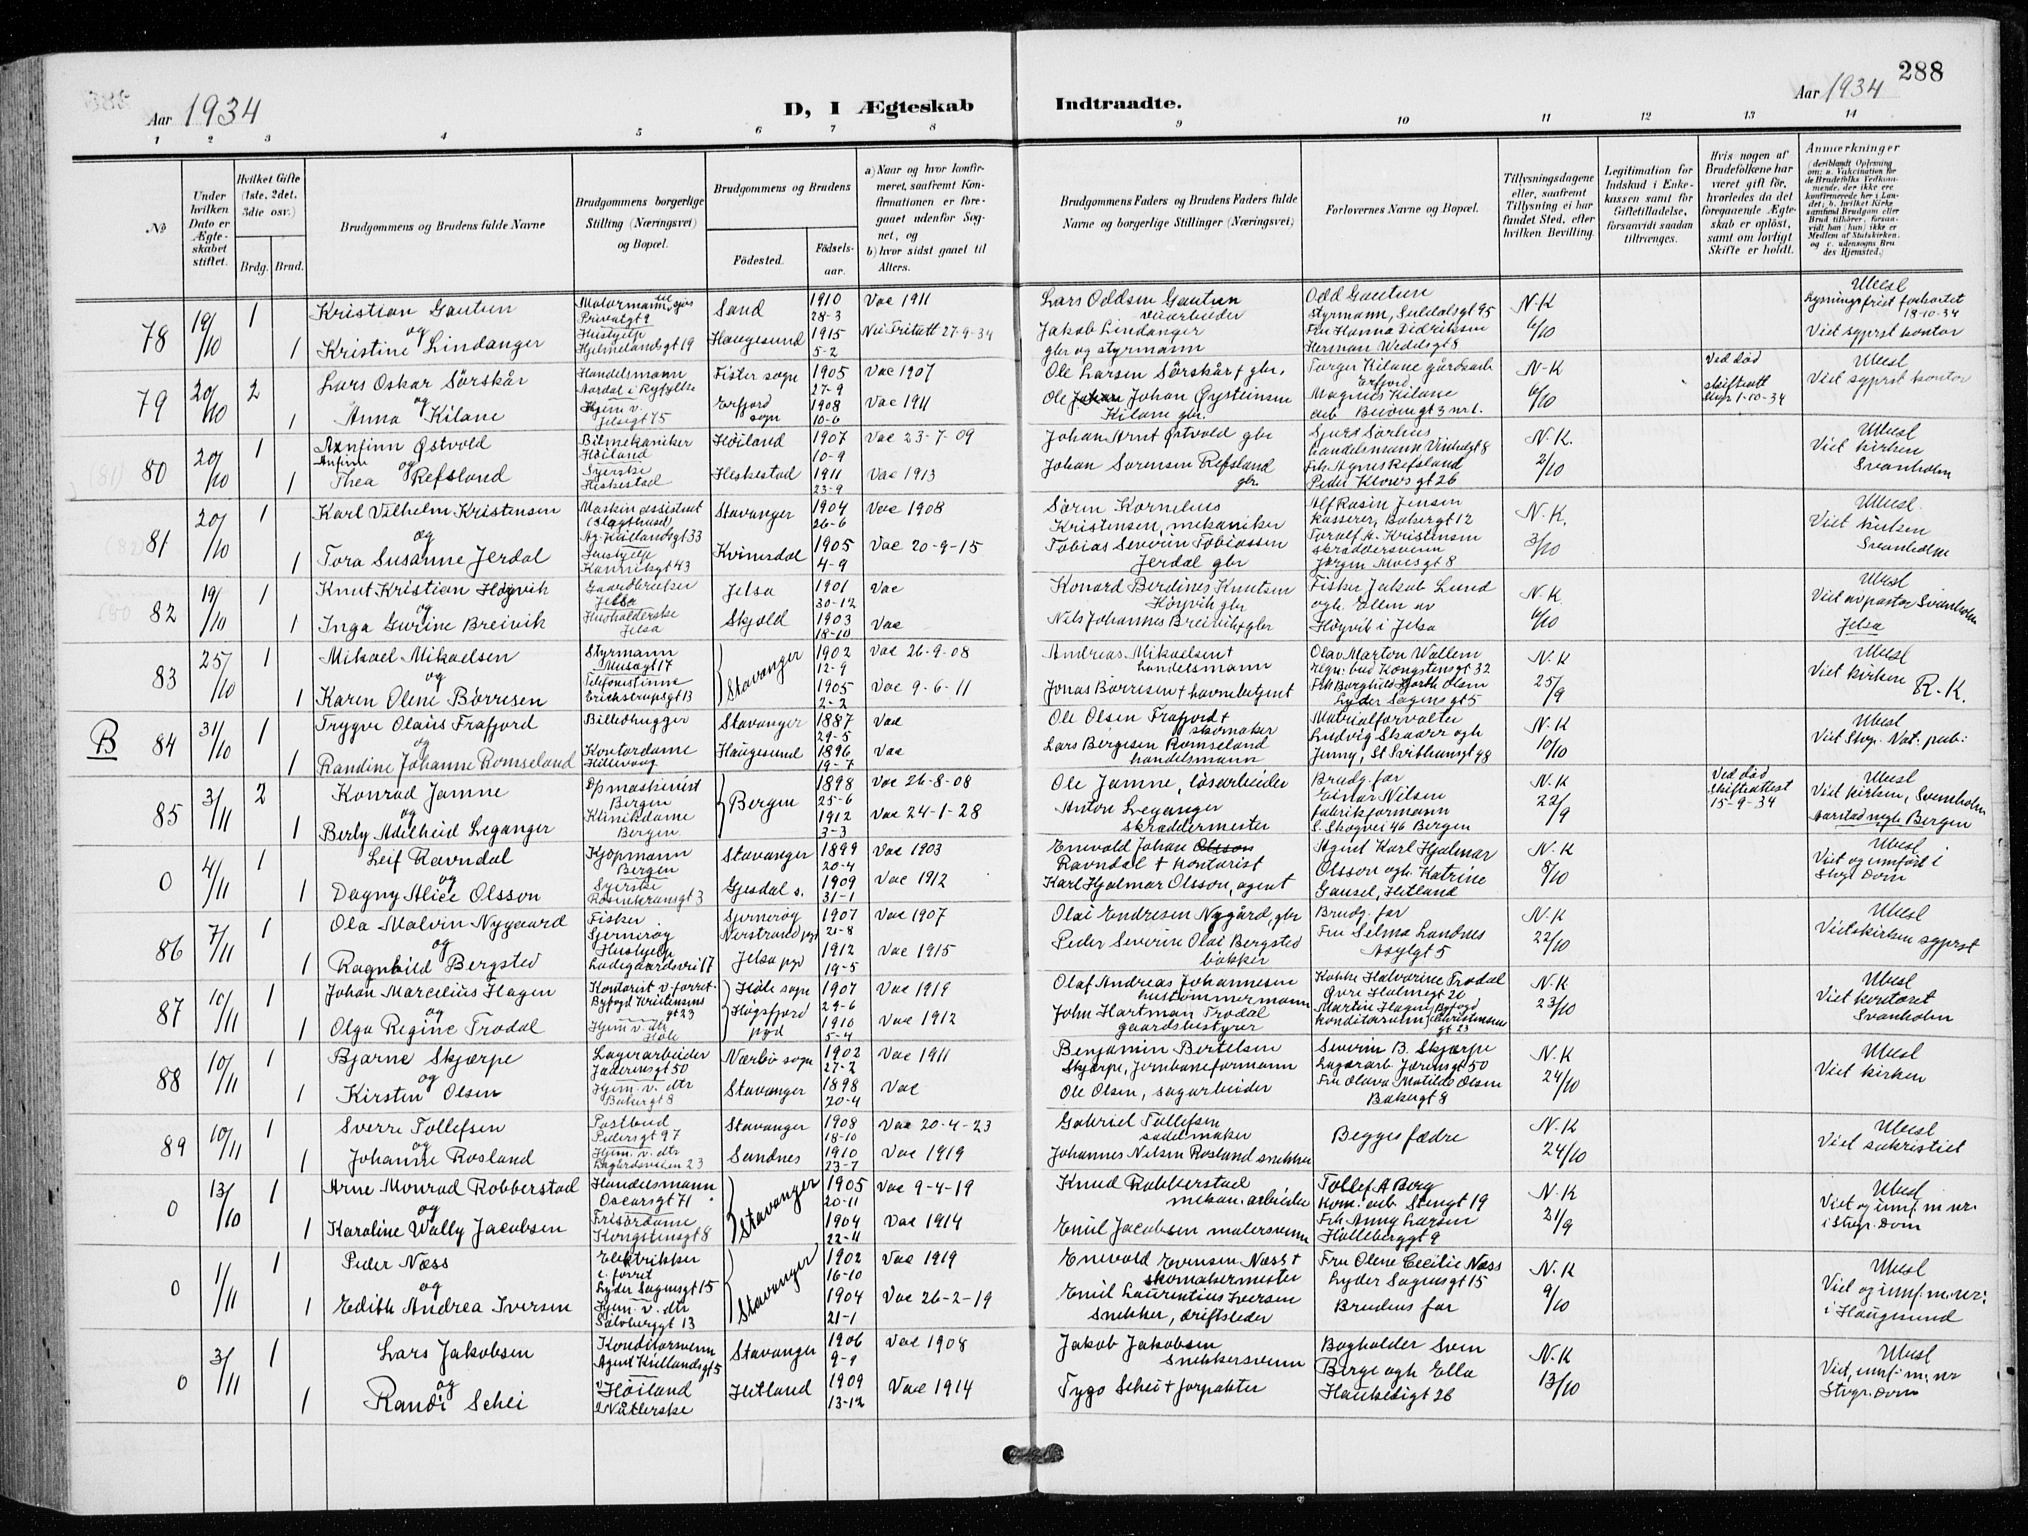 288
Aar 1934
D, I Ægteskab Indtraadte.
Aar 1934
1 2 3 4 5 6 7 8 9 10 11 12 13 14
№
Under hvilken Dato er Ægteskabet stiftet.
Hvilket Gifte (1ste, 2det, 3die osv.)
Brdg. Brud.
Brudgommens og Brudens fulde Navne
Brudgommens borgerlige Stilling (Næringsvei) og Bopæl.
Brudgommens og Brudens
Fødested. Fødselsaar.
a) Naar og hvor konfirmeret, saafremt Konfirmationen er foregaaet udenfor Sognet, og
b) hvor sidst gaaet til Alters.
Brudgommens Faders og Brudens Faders fulde Navne og borgerlige Stillinger (Næringsvei)
Forlovernes Navne og Bopæl.
Tillysningsdagene eller, saafremt Tillysning ei har fundet Sted, efter hvilken Bevilling.
Legitimation for Indskud i Enkekassen samt for Giftetilladelse, forsaavidt saadan tiltrænges.
Hvis nogen af Brudefolkene har været gift før, hvorledes da det foregaaende Ægteskab er opløst, samt om lovligt Skifte er holdt.
Anmærkninger
78 19/10 1 Kristian Gautun Motormann til sjøs Privatgt 9 Sand 1910 28-3 Vac 1911 Lars Oddsen Gautun veiarbeider Odd Gautun styrmann, Suldalsgt 95 N-K Ubesl
og
1 Kristine Lindanger Hushjelp Hjelmelandsgt 19 Haugesund 1915 5-2 Nei Fritatt 27-9-34 Jakob Lindanger gbr og styrmann Frk Hanna Didriksen Herman Wedelsgt 8 6/10 Lysningsfrist forkortet 18-10-34 Viet sgprst kontor
79 20/10 2 Lars Oskar Sørskår Handelsmann Aardal i Ryfylke Fister sogn 1905 27-9 Vac 1907 Ole Larsen Sørskår + gbr. Torger Kilane gårdsarb Erfjord N-K Ved død Ubesl
og
1 Anna Kilane Hjem v. Jelsagt 75 Erfjord sogn 1908 10-6 Vac 1911 Ole Johan Øysteinsen Kilane gbr. Magnus Kilane arb 6/10 skifteatt 1-10-34 Viet sgprst kontor
80 20/10 1 Arnfinn Østvold Bilmekaniker Høiland Høiland 1907 10-9 Vac 23-7-09 Johan Arnt Østvold gbr Sjurd Sørhus handelsmann N.K. Ubesl
Anfinn
og
1 Thea Refsland Syerske Heskestad Heskestad 1911 23-9 Vac 1913 Johan Sørensen Refsland gbr. Frk Agnes Refsland Peder Klowsgt 26 2/10 Viet kirken Svanholm
81 20/10 1 Karl Vilhelm Kristensen Maskin assistent (Slagthuset) Ag. Kiellandsgt 33 Stavanger 1904 26-6 Vac 1908 Søren Kornelius Kristensen, mekaniker Alf Rasin Jensen kasserer, Bakergt 12 N.K. Ubesl.
og
1 Tora Susanne Jerdal Hushjelp Kannikgt 43 Kvinesdal 1905 4-9 Vac 20-9-15 Tobias Severin Tobiassen Jerdal gbr Toralf A. Kristensen skreddersvenn Jørgen Moesgt 8 3/10 Viet kirken Svanholm
82 19/10 1 Knut Kristian Høyvik Gaardbruker Jelsa Jelsa 1901 30-12 Vac Konard Berdines Knutsen Høyvik gbr Fisker Jakob Lund N.K. Ubesl
og
1 Inga Gurine Breivik Husholderske Jelsa Skjold 1903 18-10 Vac Nils Johannes Breivik + gbr ogh. Ellen av Høyvik i Jelsa 6/10 Viet av pastor Svanholm Jelsa
83 25/10 1 Mikael Mikaelsen Styrmann Musegt 17 Stavanger 1902 12-9 Vac 26-9-08 Andreas Mikaelsen + handelsmann Olav Marton Wallem regn. bud Kongstensgt 32 N.K Ubesl
og
1 Karen Olene Børresen Telefonistinne Erichstrupsgt 13 1905 2-2 Vac 9-6-11 Jonas Børresen + havnebetjent Frk Borghild Hjorth Olsen Lyder Sagensgt 5 25/9 Viet kirken R-K.
B 84 31/10 1 Trygve Olaus Frafjord Billedhugger Stavanger 1887 29-5 Vac Ole Olsen Frafjord + skomaker Materialforvalter Ludvig Skaarr ogh N-K Ubesl
og
1 Randine Johanne Romseland Kontordame Hillevaag Haugesund 1896 19-7 Vac Lars Bergesen Romseland handelsmann Jenny, St Svithunsgt 48 10/10 Viet Stvgr. Not: pub:
85 3/11 2 Konrad Jamne Opmaskinist Bergen Bergen 1898 25-6 Vac 26-8-08 Ole Jamne, løsarbeider Brudg. far N-K Ved død skifteattest 15-9-34 Ubesl
og
1 Berly Adelheid Leganger Klinikdame Bergen 1912 3-3 Vac 24-1-28 Anton Leganger skræddermester Einar Nilsen fabrikformann S. Skogvei 46 Bergen 22/9 Viet kirken, Svanholm Aarstad Bergen
0 4/11 1 Leif Ravndal Kjøpmann Bergen Stavanger 1899 20-4 Vac 1903 Enevald Johan Olsson Ravndal + kontorist Agent Karl Hjalmar N-K Ubesl
og
1 Dagny Alice Olsson Syerske Rosenkransgt 3 Gjesdal s. 1909 31-1 Vac 1912 Karl Hjalmar Olsson, agent Olsson ogh. Katrine Gausel, Hetland 8/10 Viet og innført i Stvgr. Dom
86 7/11 1 Ola Malvin Nygaard Fisker Sjernerøy Sjernerøy Nerstrand pgd 1907 21-8 Vac 1907 Olai Endresen Nygård, gbr Brudg. far N-K Ubesl
og
1 Ragnhild Bergsted Hushjelp Ladegaardsvei 17 Jelsa pgd 1912 19-5 Vac 1915 Peder Severin Olai Bergsted bakker Fru Selma Landnes Asylgt 5 22/10 Viet kirken sgprst
87 10/11 1 Johan Marcelius Hagen Kontorist v. forret Byfogd Kristensens gt 23 Høle sogn 1907 29-6 Vac 1919 Olaf Andreas Johannesen hustømmermann Kokke Halvorine Trodal Øvre Holmegt 20 N-K Ubesl
og
1 Olga Regine Trodal Hjem v. dtr Høle Høgsfjord pgd 1910 5-4 Vac 1912 John Hartman Trodal gaardsbestyrer Martin Hagen konditorsvenn Byfogd Christensens gt 23 23/10 Viet kontoret Svanholm
88 10/11 1 Bjarne Skjærpe Lagerarbeider Jæderensgt 50 Nærbø sogn 1902 27-2 Vac 1911 Benjamin Bertelsen Skjærpe, jernbaneformann Severin B. Skjærpe Lagerarb. Jærensgt 50 N-K Ubesl
og
1 Kirsten Olsen Hjem. v. dtr Bakergt 8 Stavanger 1898 20-4 Vac Ole Olsen, sagarbeider Fru Olava Matilde Olsen Bakergt 8 24/10 Viet kirken
89 10/11 1 Sverre Tollefsen Postbud Pedersgt 97 Stavanger 1908 18-10 Vac 20-4-23 Gabriel Tollefsen sadelmaker Begges fædre N-K Ubesl
og
1 Johanne Rosland Hjem. v. dtr Lagårdsveien 23 Sandnes 1910 23-7 Vac 1919 Johannes Nilsen Rosland snekker 24/10 Viet sakristiet
0 13/10 1 Arne Monrad Robberstad Handelsmann Oscarsgt 71 Stavanger 1905 20-11 Vac 9-4-19 Knud Robberstad mekan. arbeider Tollef A Berg Kom. arb Stengt 19 N-K Ubesl
og
1 Karoline Wally Jacobsen Frisørdame Kongstensgt 8 1904 22-11 Vac 1914 Emil Jacobsen malersvenn Frk. Anny Larsen Holleberggt 9 21/9 Viet og innf. m. nr. i Stvgr. Dom
0 1/11 1 Peder Næss Elektrikker e. forret Lyder Sagensgt 15 Stavanger 1902 16-10 Vac 1919 Enevald Evensen Næss + skomakermester Fru Olene Cecilie Næss Lyder Sagensgt 15 N-K Ubesl
og
1 Edith Andrea Iversen Hjem. v. dtr Sølvberggt 13 1904 21-1 Vac 26-2-19 Emil Laurentius Iversen Snekker, driftsleder Brudens far 9/10 Viet og innf. m. nr. i Haugesund
0 3/11 1 Lars Jakobsen Konditorsvenn Agent Kiellandsgt 5 Stavanger 1906 9-9 Vac 1908 Jakob Jakobsen Snekkersvenn Bogholder Sven N-K Ubesl
og
1 Randi Schei Høiland Nåtlerske Hetland 1909 13-12 Vac 1914 Tygo Schei + forpakter Berge ogh Ella Haukeligt 26 13/10 Viet, innf. m. nr Stvgr. Dom